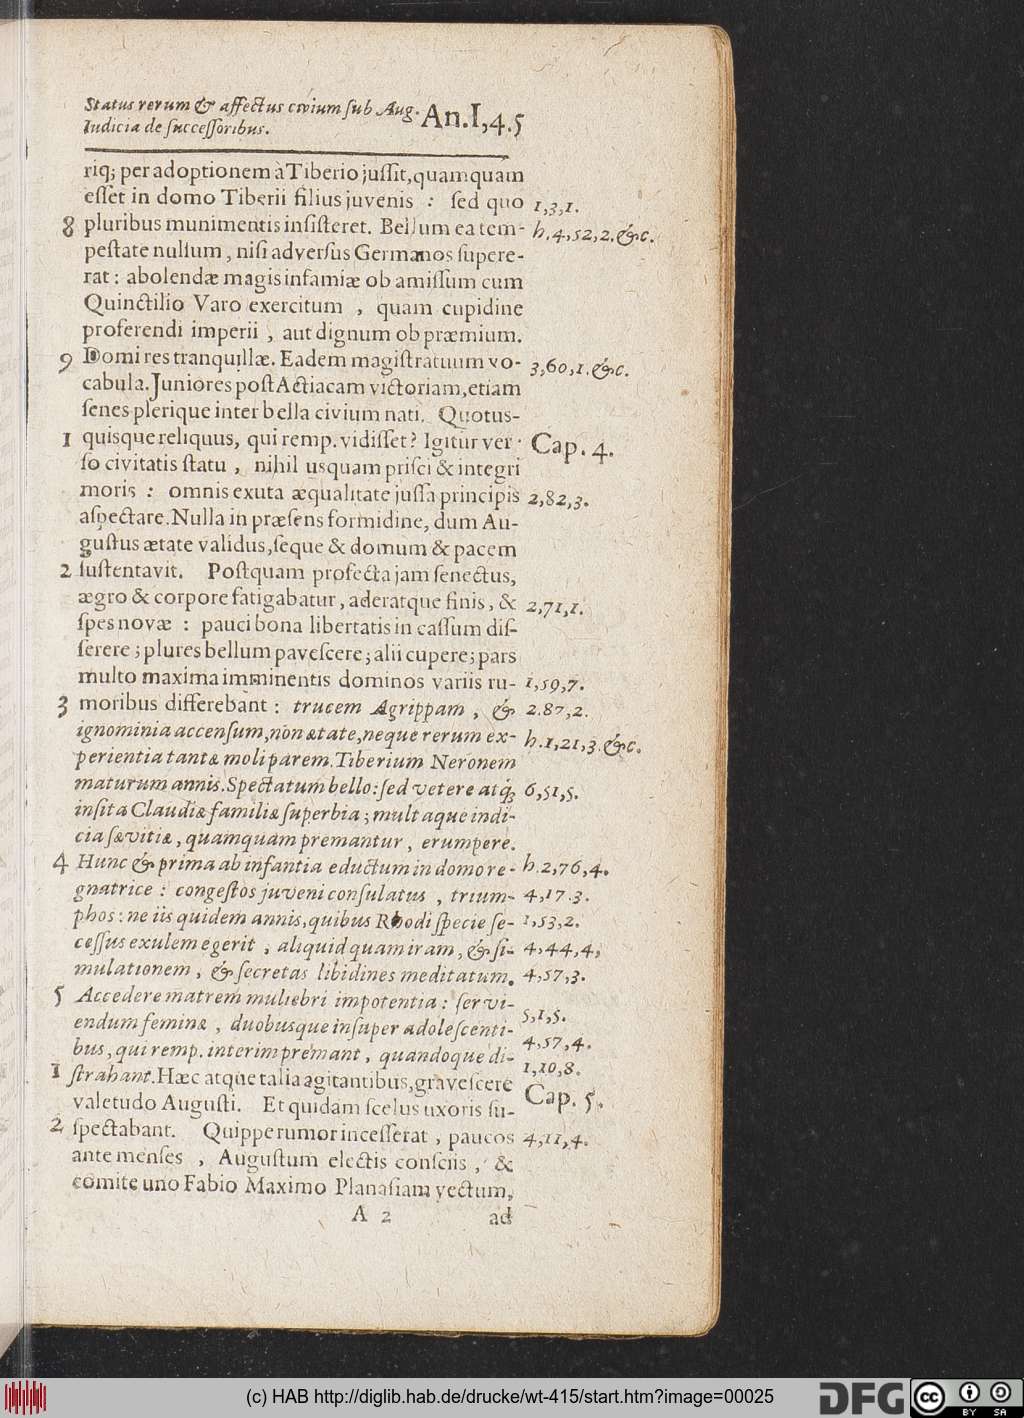 Status rerum & affectus civium ſub Aug. An.I,4.5
Iudicia de ſucceſſoribus.
riq; per adoptionem à Tiberio juſſit, quamquam
eſſet in domo Tiberii filius juvenis : ſed quo 1,3,1.
8 pluribus munimentis inſiſteret. Bellum ea tem- h.4,52,2.&c.
peſtate nullum, niſi adverſus Germanos ſupere-
rat : abolendæ magis infamiæ ob amiſſum cum
Quinctilio Varo exercitum , quam cupidine
proferendi imperii , aut dignum ob præmium.
9 Domi res tranquillæ. Eadem magiſtratuum vo- 3,60,1.&c.
cabula. Juniores poſt Actiacam victoriam, etiam
ſenes plerique inter bella civium nati. Quotus-
1 quisque reliquus, qui remp. vidiſſet? Igitur ver- Cap. 4.
ſo civitatis ſtatu , nihil usquam priſci & integri
moris : omnis exuta æqualitate juſſa principis 2,82,3.
aſpectare. Nulla in præſens formidine, dum Au-
guſtus ætate validus, ſeque & domum & pacem
2 ſuſtentavit. Poſtquam profecta jam ſenectus,
ægro & corpore fatigabatur, aderatque finis, & 2,71,1.
ſpes novæ : pauci bona libertatis in caſſum diſ-
ſerere ; plures bellum paveſcere; alii cupere; pars
multo maxima imminentis dominos variis ru- 1,59,7.
3 moribus differebant : trucem Agrippam , & 2.87,2.
ignominia accenſum, non ætate, neque rerum ex- h.1,21,3.&c.
perientia tantæ moli parem. Tiberium Neronem
maturum annis. Spectatum bello: ſed vetere atq; 6,51,5.
inſita Claudiæ familiæ ſuperbia ; multaque indi-
cia ſævitiæ, quamquam premantur , erumpere.
4 Hunc & prima ab infantia eductum in domo re- h.2,76,4.
gnatrice : congeſtos juveni conſulatus , trium- 4,17.3.
phos : ne iis quidem annis, quibus Rhodi ſpecie ſe- 1,53,2.
ceſſus exulem egerit , aliquid quam iram, & ſi- 4,44,4,
mulationem , & ſecretas libidines meditatum. 4,57,3.
5 Accedere matrem muliebri impotentia : ſervi- 5,1,5.
endum feminæ , duobusque inſuper adoleſcenti- 4,57,4.
bus, qui remp. interim premant , quandoque di- 1,10,8.
1 ſtrahant. Hæc atque talia agitantibus, graveſcere Cap. 5.
valetudo Auguſti. Et quidam ſcelus uxoris ſu-
2 ſpectabant. Quippe rumor inceſſerat , paucos 4,11,4.
ante menſes , Auguſtum electis conſciis , &
comite uno Fabio Maximo Planaſiam vectum,
A 2 ad
(c) HAB http://diglib.hab.de/drucke/wt-415/start.htm?image=00025
DFG
cc BY SA